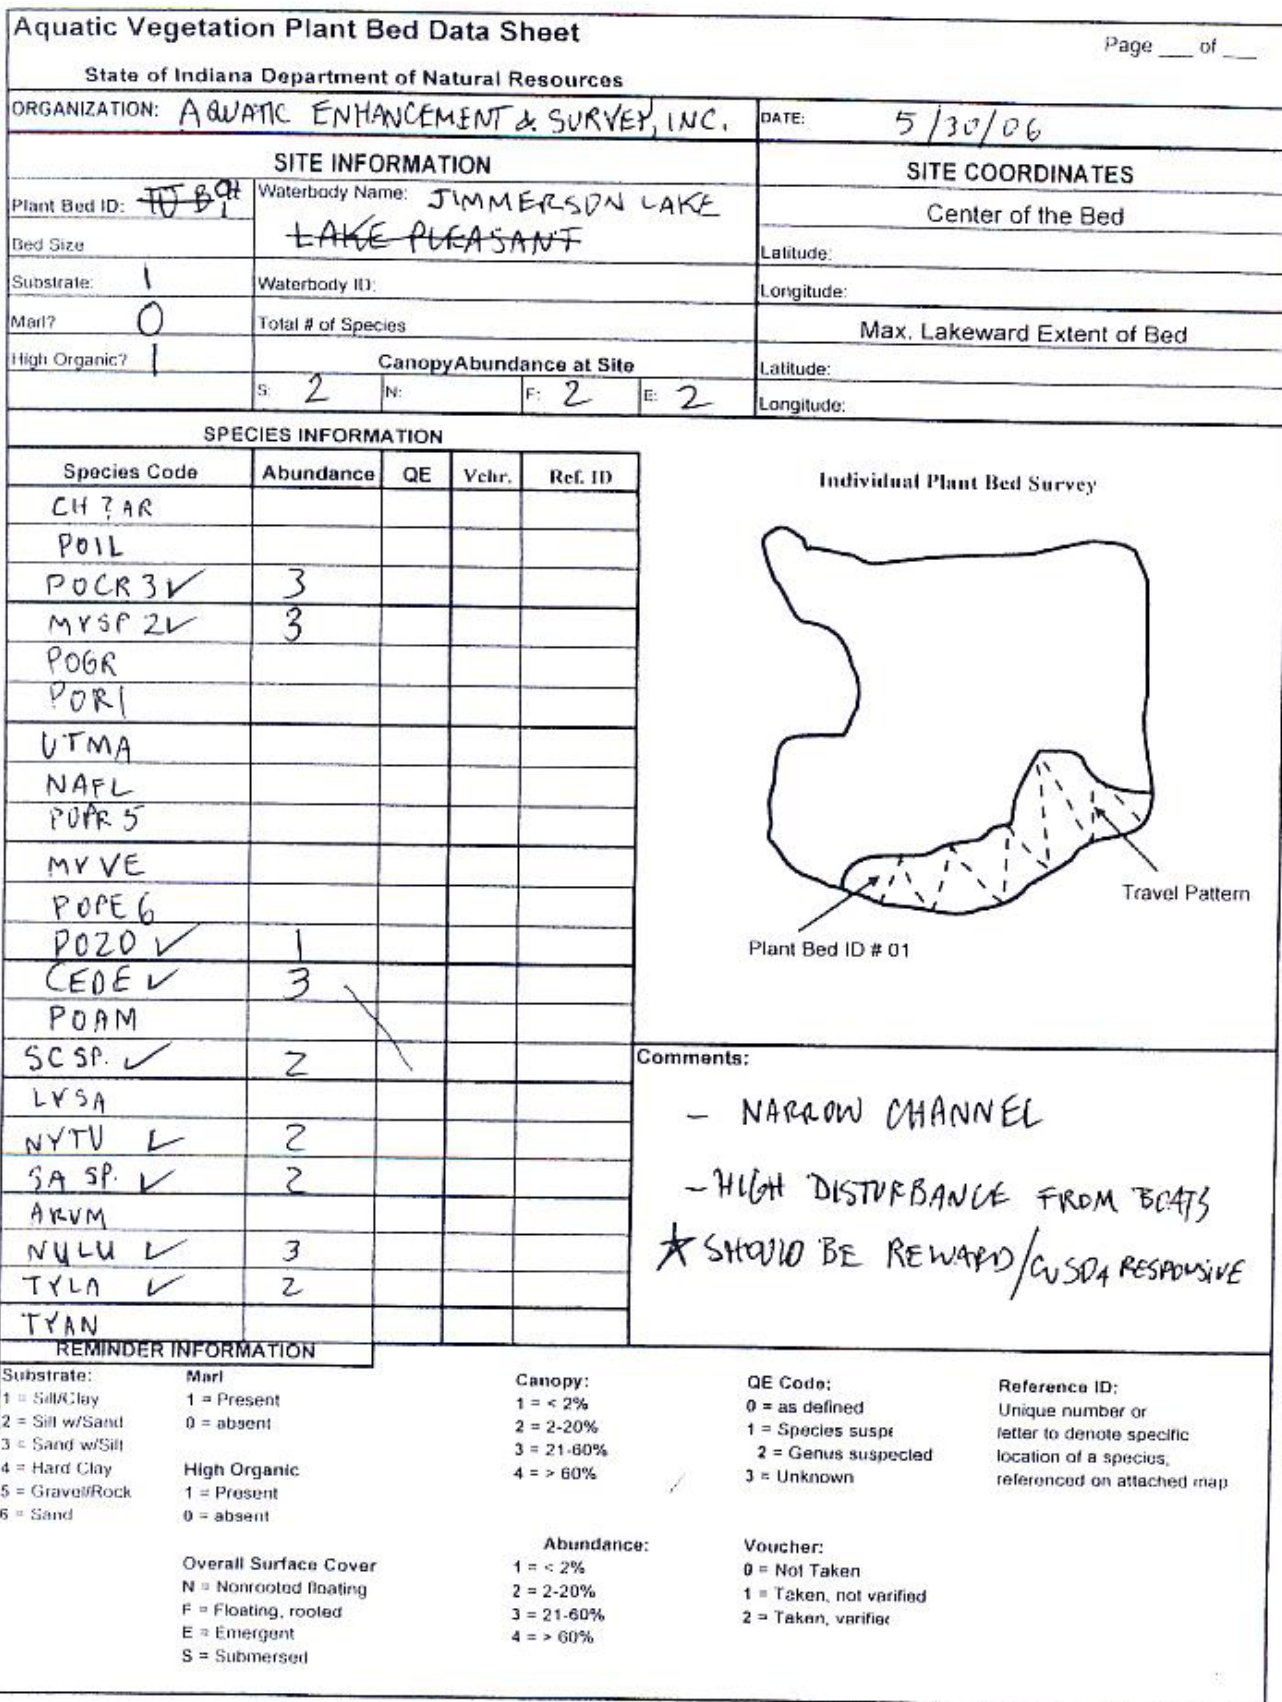 Aquatic Vegetation Plant Bed Data Sheet
Page ___ of ___
State of Indiana Department of Natural Resources
ORGANIZATION: AQUATIC ENHANCEMENT & SURVEY, INC.
DATE: 5/30/06
SITE INFORMATION
SITE COORDINATES
Plant Bed ID:
Waterbody Name: JIMMERSON LAKE
LAKE PLEASANT
Center of the Bed
Bed Size
Latitude:
Substrate: 1
Waterbody ID:
Longitude:
Marl? 0
Total # of Species
Max. Lakeward Extent of Bed
High Organic? 1
Canopy Abundance at Site
Latitude:
S: 2 N: F: 2 E: 2
Longitude:
SPECIES INFORMATION
Species Code Abundance QE Vchr. Ref. ID
Individual Plant Bed Survey
CH?AR
POIL
POCR3 ✓ 3
MYSP2 ✓ 3
POGR
PORI
UTMA
NAFL
POPR5
MYVE
POPE6
POZO ✓ 1
CEDE ✓ 3
POAM
SC SP. ✓ 2
LYSA
NYTU ✓ 2
SA SP. ✓ 2
ARUM
NULU ✓ 3
TYLA ✓ 2
TYAN
Travel Pattern
Plant Bed ID # 01
Comments:
- NARROW CHANNEL
- HIGH DISTURBANCE FROM BOATS
★ SHOULD BE REWARD/ RESPONSIVE
REMINDER INFORMATION
Substrate:
1 = Silt/Clay
2 = Silt w/Sand
3 = Sand w/Silt
4 = Hard Clay
5 = Gravel/Rock
6 = Sand
Marl
1 = Present
0 = absent
High Organic
1 = Present
0 = absent
Overall Surface Cover
N = Nonrooted floating
F = Floating, rooted
E = Emergent
S = Submersed
Canopy:
1 = < 2%
2 = 2-20%
3 = 21-60%
4 = > 60%
Abundance:
1 = < 2%
2 = 2-20%
3 = 21-60%
4 = > 60%
QE Code:
0 = as defined
1 = Species suspe
2 = Genus suspected
3 = Unknown
Voucher:
0 = Not Taken
1 = Taken, not varified
2 = Taken, varifie
Reference ID:
Unique number or
letter to denote specific
location of a species,
referenced on attached map